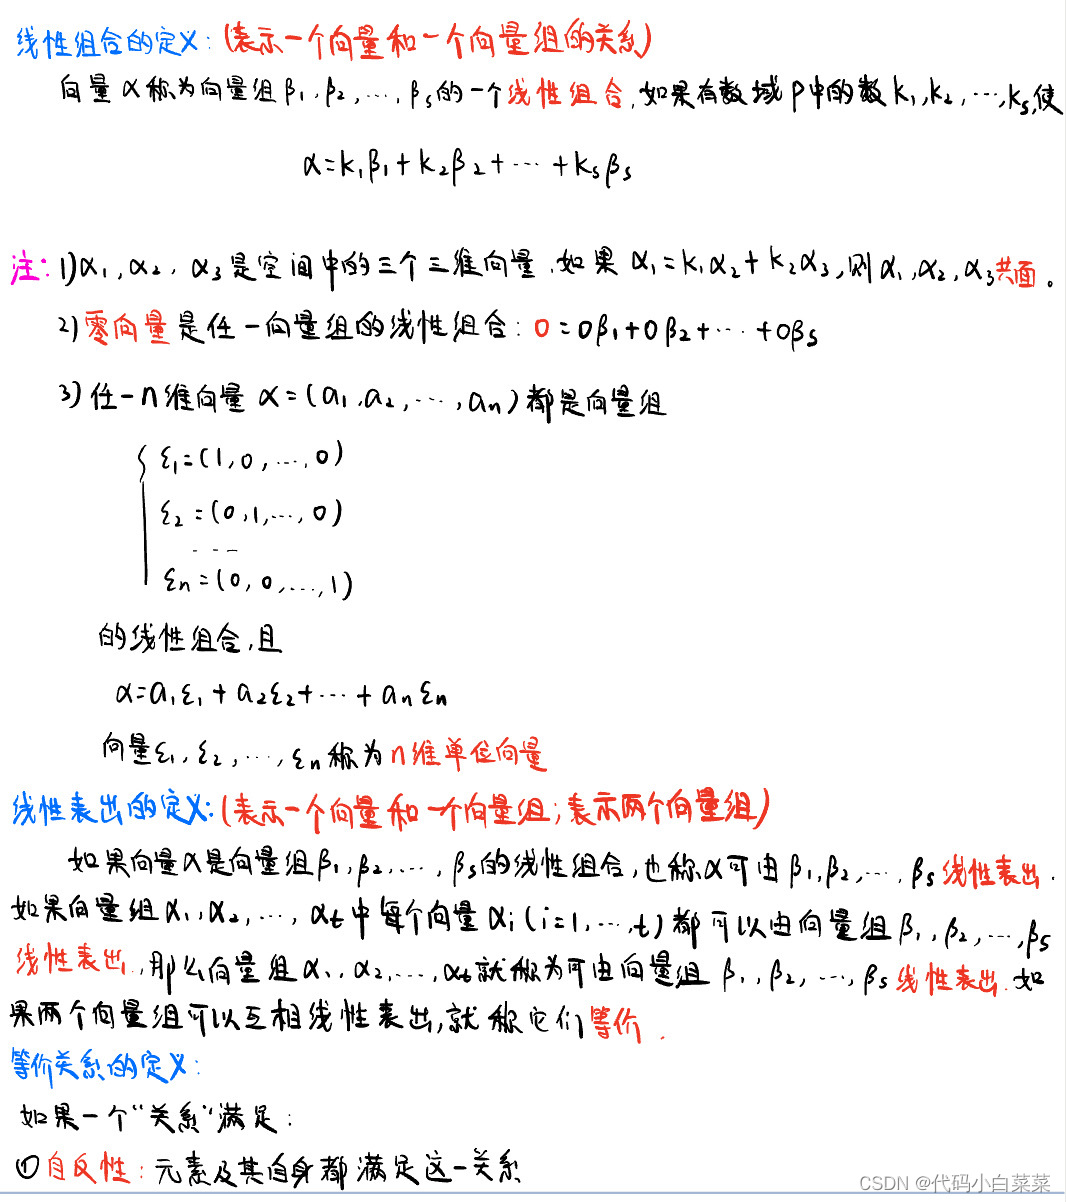 线性组合的定义:(表示一个向量和一个向量组的关系)
向量α称为向量组β₁,β₂,…,βₛ的一个线性组合,如果有数域P中的数k₁,k₂,…,kₛ,使
α=k₁β₁+k₂β₂+…+kₛβₛ
注:1)α₁,α₂,α₃是空间中的三个三维向量.如果α₁=k₁α₂+k₂α₃,则α₁,α₂,α₃共面。
2)零向量是任一向量组的线性组合:0=0β₁+0β₂+…+0βₛ
3)任一n维向量α=(a₁,a₂,…,aₙ)都是向量组
{ε₁=(1,0,…,0)
ε₂=(0,1,…,0)
----
εₙ=(0,0,…,1)
的线性组合,且
α=a₁ε₁+a₂ε₂+…+aₙεₙ
向量ε₁,ε₂,…,εₙ称为n维单位向量
线性表出的定义:(表示一个向量和一个向量组;表示两个向量组)
如果向量α是向量组β₁,β₂,…,βₛ的线性组合,也称α可由β₁,β₂,…,βₛ线性表出.
如果向量组α₁,α₂,…,αₜ中每个向量αᵢ(i=1,…,t)都可以由向量组β₁,β₂,…,βₛ
线性表出,那么向量组α₁,α₂,…,αₜ就称为可由向量组β₁,β₂,…,βₛ线性表出.如
果两个向量组可以互相线性表出,就称它们等价.
等价关系的定义:
如果一个"关系"满足:
①自反性:元素及其自身都满足这一关系
CSDN @代码小白菜菜